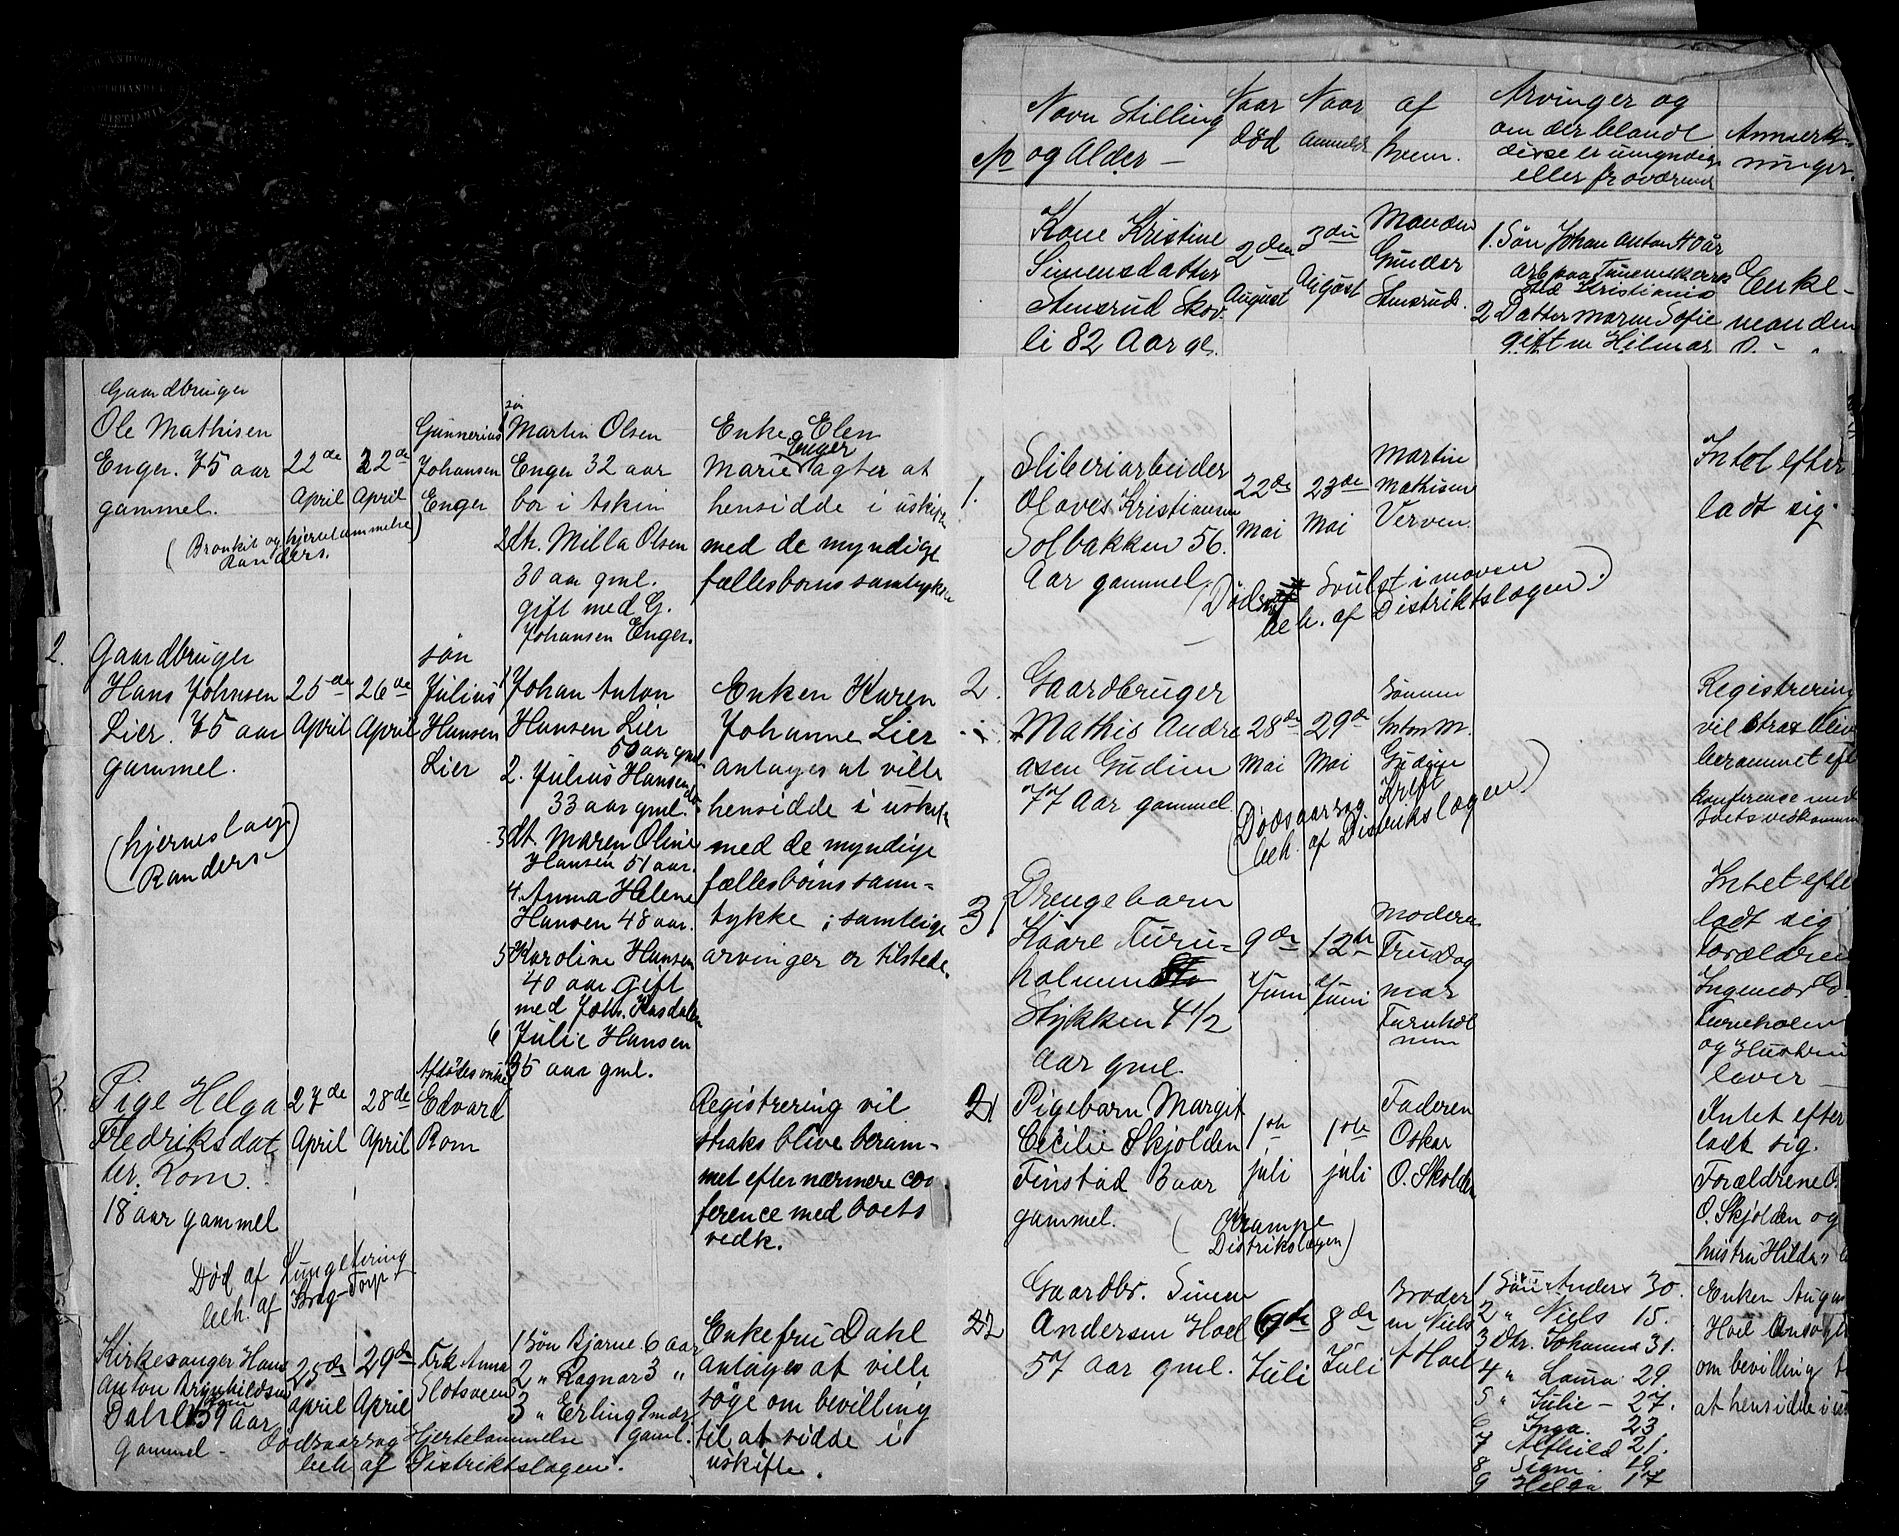 No Navn Stilling og Alder — Naar død Naar anmeldt af hvem. Arvinger og om der blandt disse er umyndige eller fraværende Anmærkninger.
Kone Kristine
Simensdatter
Stensrud Skov-
li 82 Aar gl.
2den August
3die August
Manden
Gunder
Stensrud.
1. Søn Johan Anton 40 aar
Kristiania
2 Datter Maren Sofie
gift m Hilmar
Enke-
manden
Gaardbruger
Ole Mathisen
Enger. 75 aar
gammel.
(Bronkit og hjertelammelse
Randers.)
22de
April
22de
April
Gunnerius
Johansen
Enger
1 søn Martin Olsen
Enger 32 aar
bor i Askim
2 dtr. Milla Olsen
30 aar gml.
gift med G.
Johansen Enger.
Enke Elen
Marie Enger agter at
hensidde i uskifte
med de myndige
fællesbørns samtykke
2. Gaardbruger
Hans Johnsen
Lier. 75 aar
gammel.
(hjerneslag
Randers)
25de
April
26de
April
søn
Julius
Hansen
Lier
1 Johan Anton
Hansen Lier
50 aar gml.
2. Julius Hansen
33 aar gml.
3 dt Maren Oline
Hansen 51 aar.
4. Anna Helene
Hansen 48 aar.
5 Karoline Hansen
40 aar Gift
med Joh.
6 Julie Hansen
35 aar gml.
Enken Karen
Johanne Lier
antages at ville
hensidde i uskifte
med de myndige
fællesbørns sam-
tykke; samtlige
arvinger er tilstede.
3. Pige Helga
Fredriksdat
ter. Rom.
18 aar gammel
Død af Lungetæring
beh. af
27de
April
28de
April
Afdødes onkel
Edvard
Rom
Registrering vil
straks blive beram-
met efter nærmere con
ference med boets
vedk.
Kirkesanger Hans
Anton Brynhildsen
Dahl 59 Aar
gammel -
Dødsaarsag Hjertelammelse
beh af Distriktslægen.
25de
april
29de
April
Frk Anna
Slotsveen
1 Søn Bjarne 6 aar
2 " Ragnar 3 "
3 " Erling 9 mdr.
gaml.
Enkefru Dahl
antages at ville
søge om bevilling
til at sidde i
uskifte.
1. Sliberiarbeider
Olaves Kristiansen
Solbakken 56.
Aar gammel.
(Døds Svulst i maven
beh. af Distriktslægen.)
22de
Mai
23de
Mai
Martin
Mathisen
Verven.
Intet efter
ladt sig.
2. Gaardbruger
Mathis Andre
asen Gudim
77 Aar gammel
28de
Mai
29de
Mai
Sønnen
Anton M.
Gudim
(Dødsaarsag Kreft
beh. af Distriktslægen)
Registrering
vil strax blive
berammet eft
konference med
boets vedkommen
3 Drengebarn
Kaare Furu-
holmen
Stykken 4 1/2
Aar gml.
9de
Juni
12te
Juni
Moderen
Fru Dag
mar
Furuhol
men
Intet efter
ladt sig
Forældrene
Ingeniør
Furuholm
og Hustru
lever —
21 Pigebarn Margit
Cecilie Skjolden
Finstad 3 aar
gammel.
(Krampe
Distriktslægen)
1ste
juli
1ste
juli
Faderen
Oskar
O. Skolden
Intet efter
ladt sig.
Forældrene O.
O. Skjolden og
hustru Hilda
22 Gaardbr. Simen
Andersen Hoel
57 aar gml.
Juli
8de
Juli
Broder
en Niels
A Hoel
1 Søn Anders 30.
2 " Niels 15.
3 Dtr. Johanna 31.
4 " Laura 29.
5 " Julie - 27.
6 Inga. 23
7 Alfhild 21.
8 Signe. 19.
9 Helga 17
Enken
Hoel Ansøgt
om bevilling t
at hensidde i us